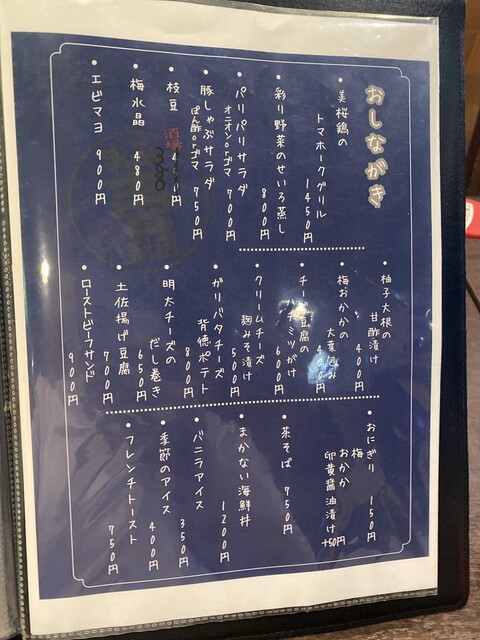 おしながき
・美桜鶏の
トマホークグリル
1450円
・彩り野菜のせいろ蒸し
800円
・パリパリサラダ
オニオンorゴマ
700円
・豚しゃぶサラダ
ぽん酢orゴマ
750円
・枝豆
酒場
380
・梅水晶
480円
・エビマヨ
900円
・柚子大根の
甘酢漬け
400円
・梅おかかの
大葉包み
400円
・チー 豆腐の
チミツがけ
600円
・クリームチーズ
麹みそ漬け
500円
・ガリバタチーズ
背徳ポテト
800円
・明太チーズの
だし巻き
650円
・土佐揚げ豆腐
700円
・ローストビーフサンド
900円
・おにぎり 150円
梅
おかか
卵黄醤油漬け+50円
・茶そば 750円
・まかない海鮮丼
1200円
・バニラアイス
350円
・季節のアイス
400円
・フレンチトースト
750円